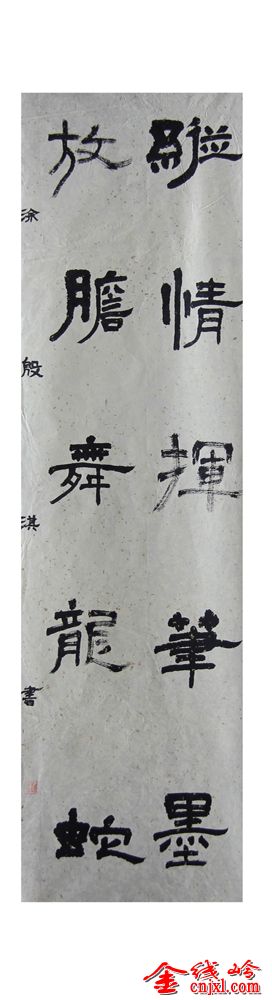 縱情揮筆墨
放膽舞龍蛇
涂殿淇書
金线岭
cnjxl.com